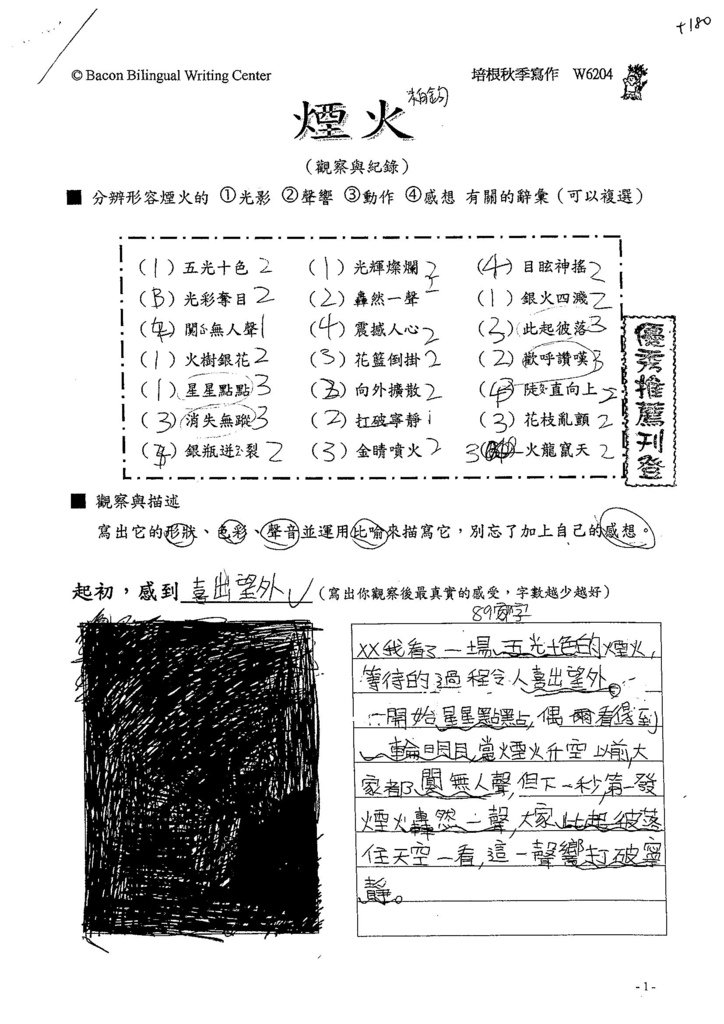 +180
© Bacon Bilingual Writing Center
培根秋季寫作 W6204
煙火
柏鈞
(觀察與紀錄)
■ 分辨形容煙火的 ①光影 ②聲響 ③動作 ④感想 有關的辭彙(可以複選)
(1)五光十色2 (1)光輝燦爛2 (4)目眩神搖2
光彩奪目2 (2)轟然一聲 (1)銀火四濺2
無人聲1 (4)震撼人心2 (3)此起彼落3
(1)火樹銀花2 (3)花籃倒掛2 (2)歡呼讚嘆3
(1)星星點點3 向外擴散2 直向上2
(3)消失無蹤3 (2)打破寧靜1 (3)花枝亂顫2
銀瓶迸裂2 (3)金睛噴火2 火龍竄天2
優秀推薦刊登
■ 觀察與描述
寫出它的形狀、色彩、聲音並運用比喻來描寫它,別忘了加上自己的感想。
起初,感到喜出望外(寫出你觀察後最真實的感受,字數越少越好)
XX我看了一場五光十色的煙火,
等待的過程令人喜出望外。
一開始星星點點,偶爾看得到
一輪明月,當煙火升空以前,大
家都闃無人聲,但下一秒,第一發
煙火轟然一聲,大家此起彼落
往天空一看,這一聲響打破寧
靜。
- 1 -